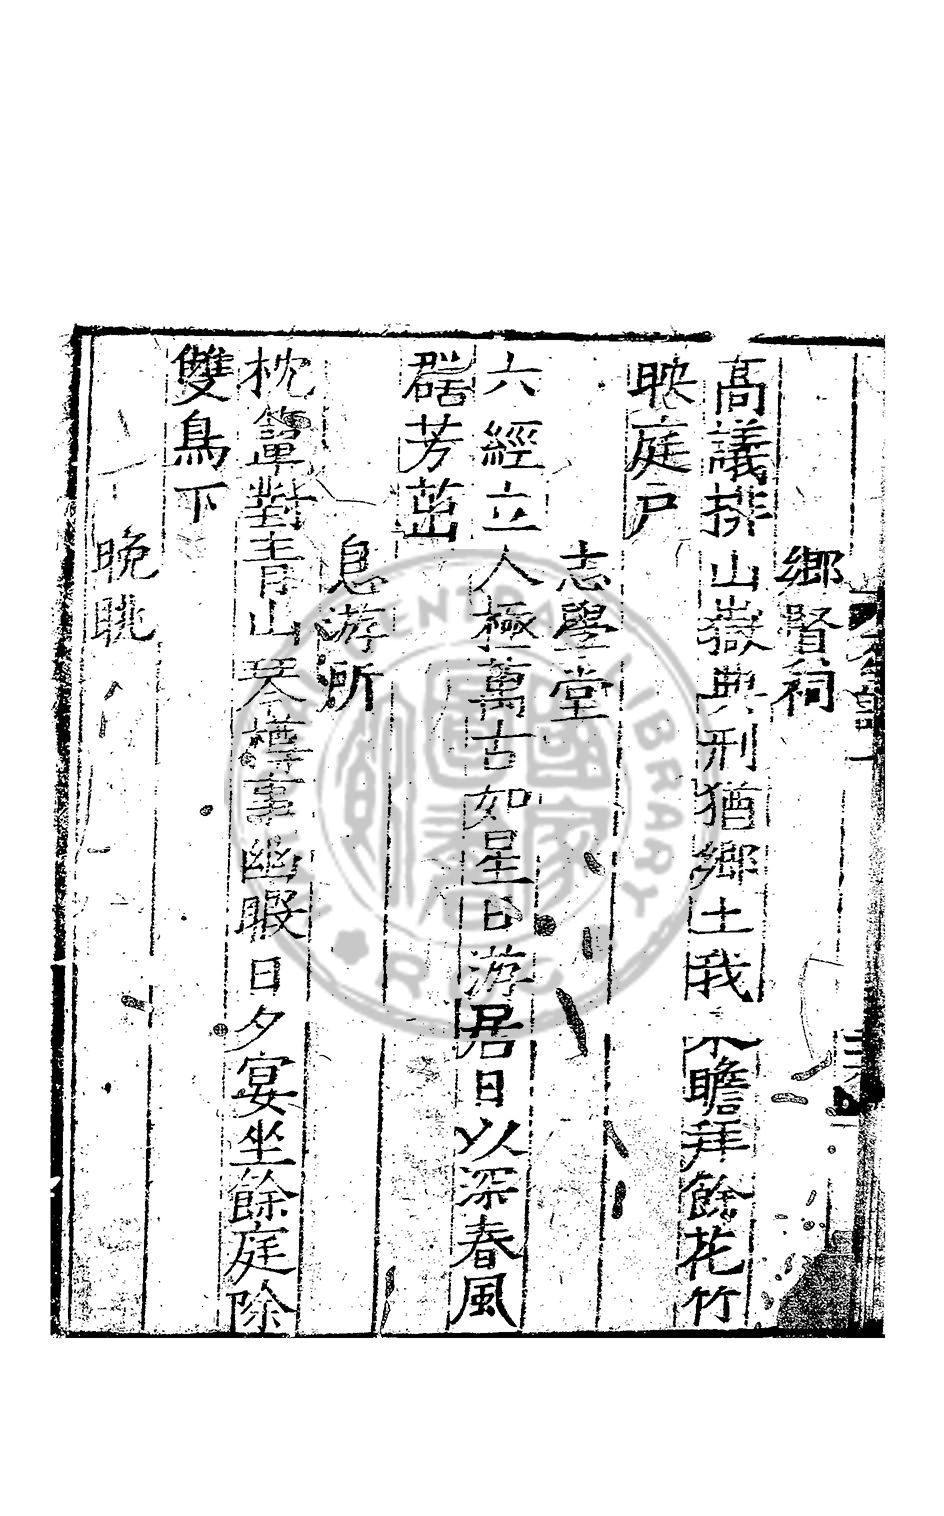 鄉賢祠
高議排山嶽典刑猶鄉土我來瞻拜餘花竹
映庭戸
志學堂
六經立人極萬古如星日游居日以深春風
群芳茁
息游所
枕簟對青山琴樽事幽暇日夕宴坐餘庭除
雙鳥下
晚眺